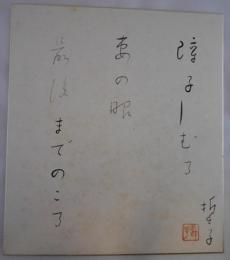 障子しむる
妻の眼
最後までのこる
哲子